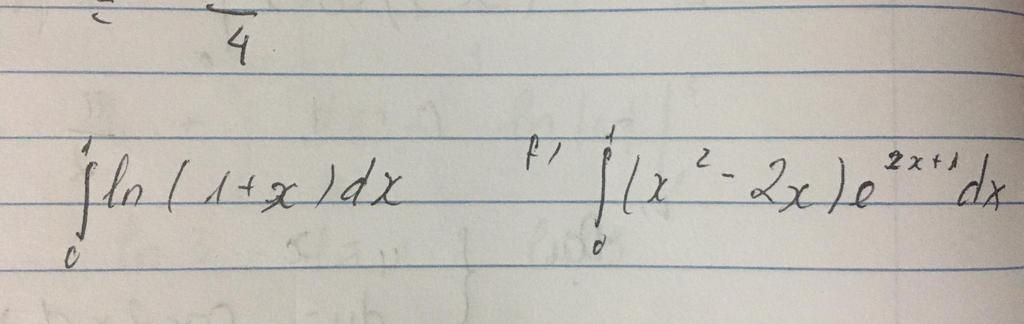 = —
4
∫₀¹ ln(1+x)dx f, ∫₀¹ (x² - 2x)e²ˣ⁺¹ dx